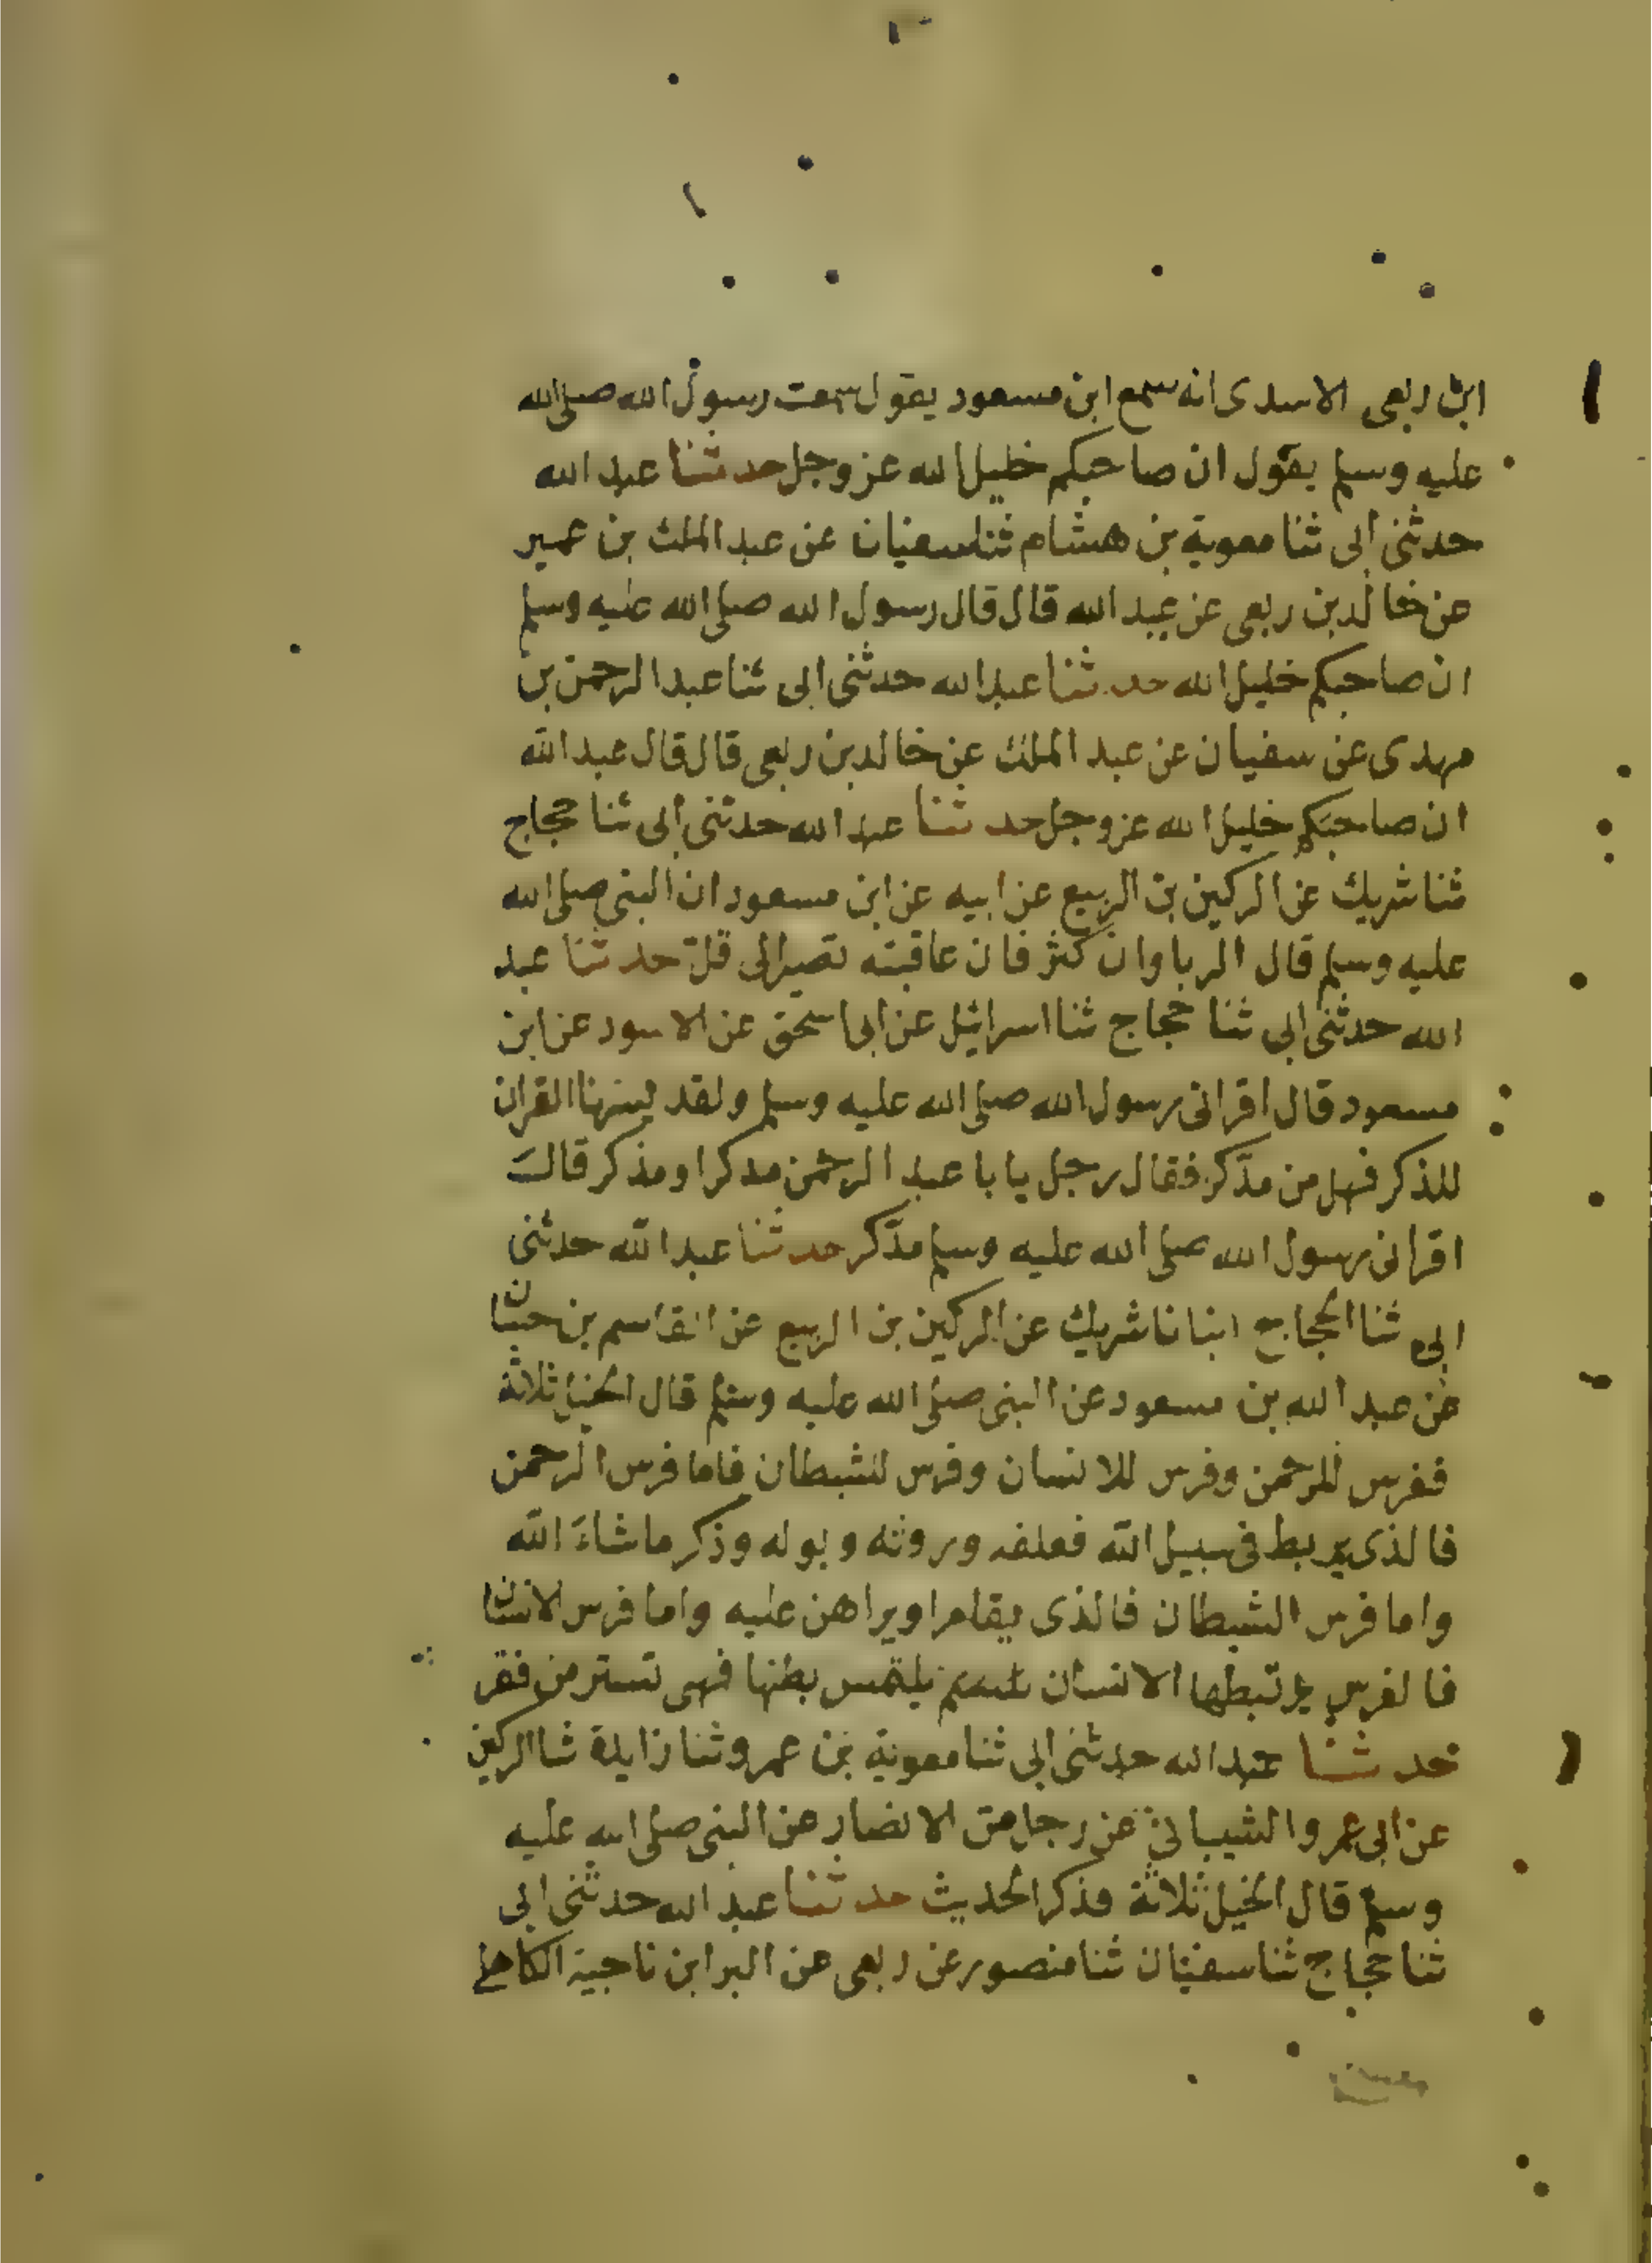 ابن ربعى الاسدى انه سمع ابن مسعود يقول سمعت رسول الله صلى الله
عليه وسلم يقول ان صاحبكم خليل الله عز وجل حدثنا عبد الله
حدثنى ابى ثنا معوية بن هشام ثنا سفيان عن عبد الملك بن عمير
عن خالد بن ربعى عن عبد الله قال قال رسول الله صلى الله عليه وسلم
ان صاحبكم خليل الله حدثنا عبد الله حدثنى ابى ثنا عبد الرحمن بن
مهدى عن سفيان عن عبد الملك عن خالد بن ربعى قال قال عبد الله
ان صاحبكم خليل الله عز وجل حدثنا عبد الله حدثنى ابى ثنا حجاج
ثنا شريك عن الركين بن الربيع عن ابيه عن ابن مسعود ان النبى صلى الله
عليه وسلم قال الربا وان كثر فان عاقبته تصير الى قل حدثنا عبد
الله حدثنى ابى ثنا حجاج ثنا اسرائيل عن ابى اسحق عن الاسود عن ابن
مسعود قال اقرانى رسول الله صلى الله عليه وسلم ولقد يسرنا القران
للذكر فهل من مدّكر فقال رجل يا با عبد الرحمن مدكر او مذكر قال
اقرانى رسول الله صلى الله عليه وسلم مدّكر حدثنا عبد الله حدثنى
ابى ثنا الحجاج انبانا شريك عن الركين بن الربيع عن القاسم بن حسان
عن عبد الله بن مسعود عن النبى صلى الله عليه وسلم قال الخيل ثلاثة
ففرس للرحمن وفرس للانسان وفرس للشيطان فاما فرس الرحمن
فالذى يربط فى سبيل الله فعلفه وروثه وبوله وذكر ما شاءَ الله
واما فرس الشيطان فالذى يقامر او يراهن عليه واما فرس الانسان
فالفرس يرتبطها الانسان يلتمس بطنها فهى تستر من فقر
حدثنا عبد الله حدثنى ابى ثنا معوية بن عمرو ثنا زايدة ثنا الركين
عن ابى عمرو الشيبانى عن رجل من الانصار عن النبى صلى الله عليه
وسلم قال الخيل ثلاثة فذكر الحديث حدثنا عبد الله حدثنى ابى
ثنا حجاج ثنا سفيان ثنا منصور عن ربعى عن البرا بن ناجية الكاهلى